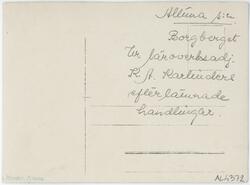 Altuna s:n
Borgberget
Ur läroverksadj.
K. A. Karlinders
efterlämnade
handlingar.
AL4372